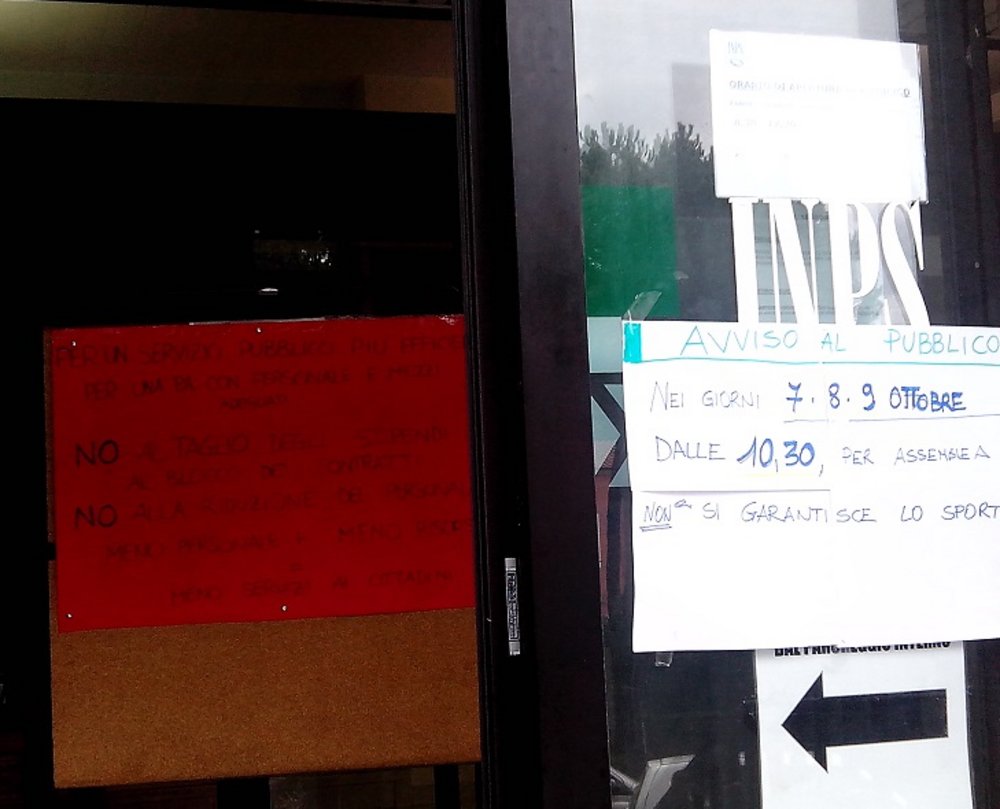 PER UN SERVIZIO PUBBLICO PIÙ
PER UNA PA CON PERSONALE E MEZZI
NO AL TAGLIO DEGLI STIPENDI
AL BLOCCO DEI CONTRATTI
NO ALLA RIDUZIONE DEL PERSONAL
MENO PERSONALE E MENO RISORS
MENO SERVIZI AI CITTADINI
ORARIO DI APERTURA
INPS
AVVISO AL PUBBLICO
NEI GIORNI 7.8.9 OTTOBRE
DALLE 10,30, PER ASSEMBLEA
NON SI GARANTISCE LO SPORT
DAL PARCHEGGIO INTERNO